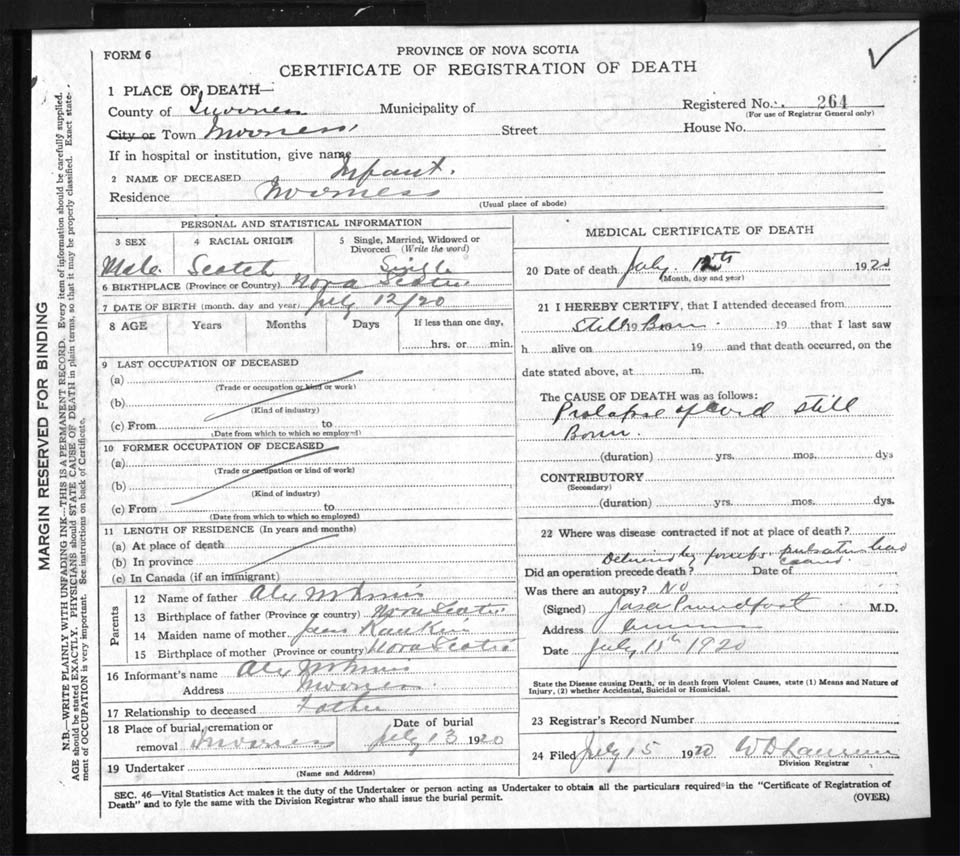 PROVINCE OF NOVA SCOTIA
FORM 6
CERTIFICATE OF REGISTRATION OF DEATH
1 PLACE OF DEATH—
County of Inverness Municipality of Registered No. 264
(For use of Registrar General only)
City or Town Inverness Street House No.
If in hospital or institution, give name
2 NAME OF DECEASED Infant.
Residence Inverness
(Usual place of abode)
PERSONAL AND STATISTICAL INFORMATION
3 SEX 4 RACIAL ORIGIN 5 Single, Married, Widowed or Divorced (Write the word)
Male Scotch Single
6 BIRTHPLACE (Province or Country) Nova Scotia
7 DATE OF BIRTH (month, day and year) July 12/20
8 AGE Years Months Days If less than one day,
hrs. or min.
9 LAST OCCUPATION OF DECEASED
(a)
(Trade or occupation or kind or work)
(b)
(Kind of industry)
(c) From to
(Date from which to which so employed)
10 FORMER OCCUPATION OF DECEASED
(a)
(Trade or occupation or kind of work)
(b)
(Kind of industry)
(c) From to
(Date from which to which so employed)
11 LENGTH OF RESIDENCE (In years and months)
(a) At place of death
(b) In province
(c) In Canada (if an immigrant)
Parents
12 Name of father Alex McInnis
13 Birthplace of father (Province or country) Nova Scotia
14 Maiden name of mother Rankin
15 Birthplace of mother (Province or country) Nova Scotia
16 Informant's name Alex McInnis
Address Inverness
17 Relationship to deceased Father
18 Place of burial, cremation or Date of burial
removal Inverness July 13 1920
19 Undertaker
(Name and Address)
MEDICAL CERTIFICATE OF DEATH
20 Date of death July 12th 1920
(Month, day and year)
21 I HEREBY CERTIFY, that I attended deceased from
Still 19 Born 19 that I last saw
h alive on 19 and that death occurred, on the
date stated above, at m.
The CAUSE OF DEATH was as follows:
Prolapse of cord still
Born.
(duration) yrs. mos. dys
CONTRIBUTORY
(Secondary)
(duration) yrs. mos. dys.
22 Where was disease contracted if not at place of death?
forceps
Did an operation precede death? Date of
Was there an autopsy? No
(Signed) Proudfoot M.D.
Address Inverness
Date July 15th 1920
State the Disease causing Death, or in death from Violent Causes, state (1) Means and Nature of
Injury, (2) whether Accidental, Suicidal or Homicidal.
23 Registrar's Record Number
24 Filed July 15 1920
Division Registrar
SEC. 46—Vital Statistics Act makes it the duty of the Undertaker or person acting as Undertaker to obtain all the particulars required in the "Certificate of Registration of
Death" and to fyle the same with the Division Registrar who shall issue the burial permit.
(OVER)
MARGIN RESERVED FOR BINDING
N.B.—WRITE PLAINLY WITH UNFADING INK—THIS IS A PERMANENT RECORD. Every item of information should be carefully supplied.
AGE should be stated EXACTLY. PHYSICIANS should STATE CAUSE OF DEATH in plain terms, so that it may be properly classified. Exact state-
ment of OCCUPATION is very important. See instructions on back of Certificate.